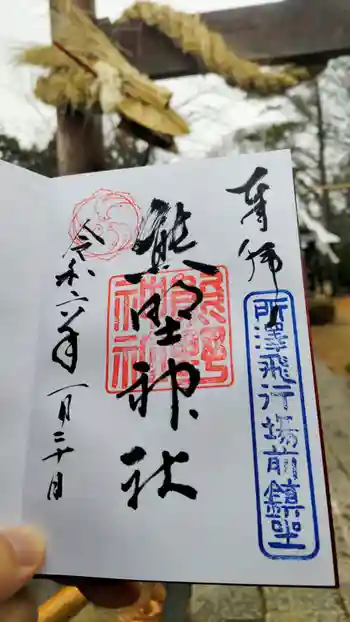 奉拝
所澤飛行場前鎮坐
熊野神社
熊野神社
令和六年一月二十日